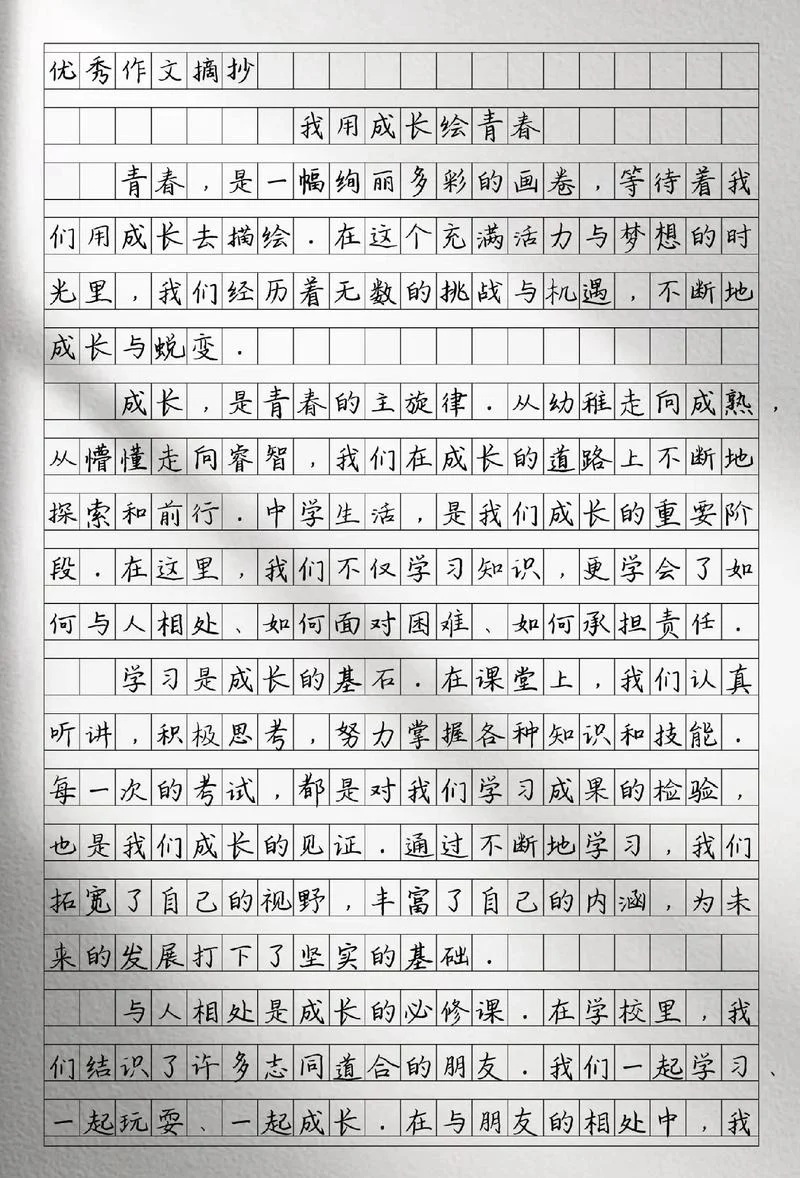 优秀作文摘抄
我用成长绘青春
青春，是一幅绚丽多彩的画卷，等待着我
们用成长去描绘．在这个充满活力与梦想的时
光里，我们经历着无数的挑战与机遇，不断地
成长与蜕变．
成长，是青春的主旋律．从幼稚走向成熟，
从懵懂走向睿智，我们在成长的道路上不断地
探索和前行．中学生活，是我们成长的重要阶
段．在这里，我们不仅学习知识，更学会了如
何与人相处、如何面对困难、如何承担责任．
学习是成长的基石．在课堂上，我们认真
听讲，积极思考，努力掌握各种知识和技能．
每一次的考试，都是对我们学习成果的检验，
也是我们成长的见证．通过不断地学习，我们
拓宽了自己的视野，丰富了自己的内涵，为未
来的发展打下了坚实的基础．
与人相处是成长的必修课．在学校里，我
们结识了许多志同道合的朋友．我们一起学习、
一起玩耍、一起成长．在与朋友的相处中，我